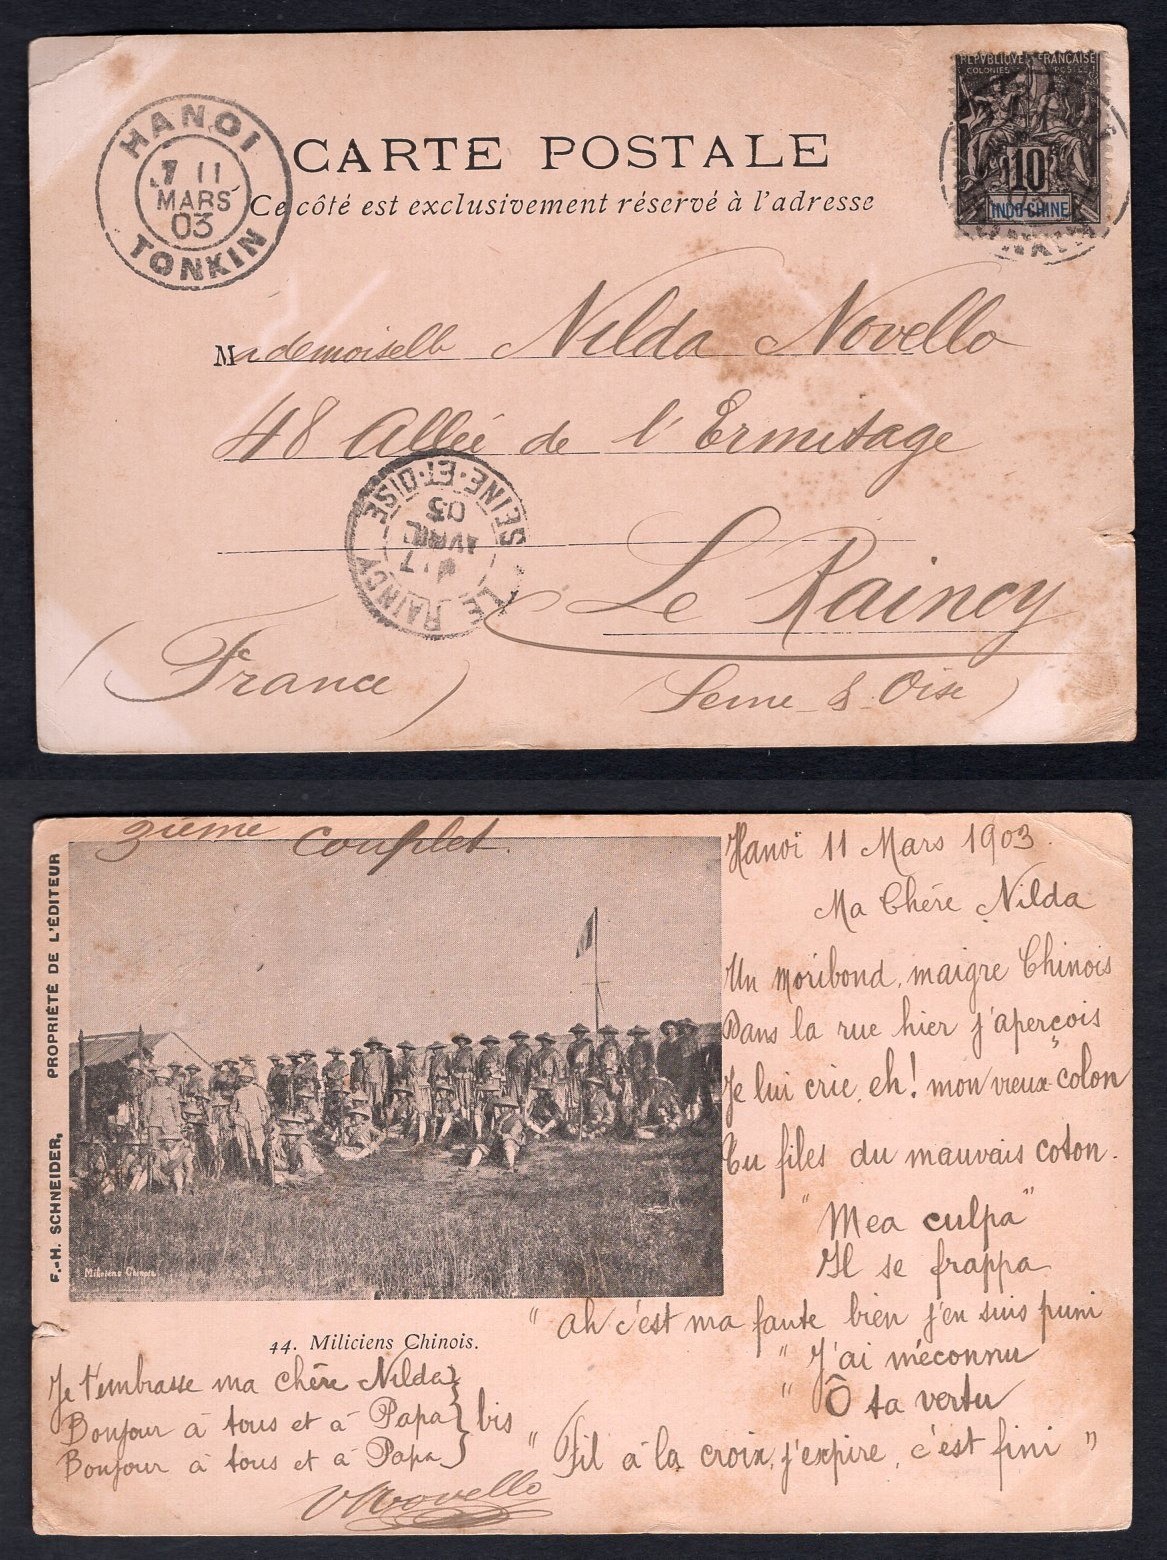 HANOI
7 11
MARS
03
TONKIN
REPVBLIQUE FRANCAISE
COLONIES POSTES
10
INDO-CHINE
CARTE POSTALE
Ce côté est exclusivement réservé à l'adresse
Mademoiselle Nilda Novello
48 Allée de l'Ermitage
LE RAINCY
7
AVRIL
03
SEINE-ET-OISE
Le Raincy
(France)
(Seine & Oise)
3ième Couplet.
F.-H. SCHNEIDER, PROPRIÉTÉ DE L'ÉDITEUR
Miliciens Chinois
44. Miliciens Chinois.
Hanoï 11 Mars 1903.
Ma Chère Nilda
Un moribond, maigre Chinois
Dans la rue hier j'aperçois
Je lui crie, eh! mon vieux colon
Tu files du mauvais coton.
"Mea culpa"
Il se frappa
" ah c'est ma faute bien j'en suis puni
" J'ai méconnu
" Ô ta vertu
" Fil à la croix, j'expire, c'est fini "
Je t'embrasse ma chère Nilda
Bonjour à tous et à Papa } bis
Bonjour à tous et à Papa
VNovello